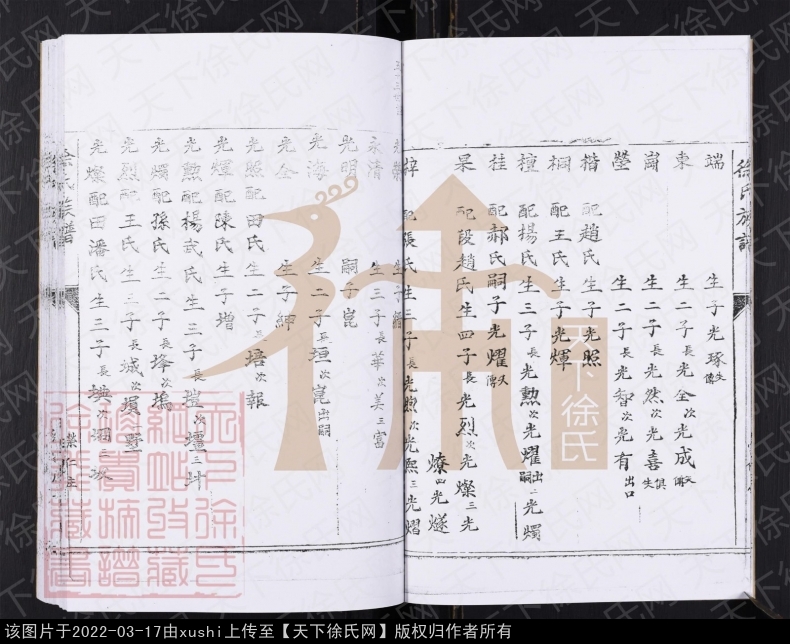 徐氏族譜
端 生子光琢失傳
東 生二子長光全次光成失傳
崗 生二子長光然次光喜俱失
瑩 生二子長光智次光有出口
楷 配趙氏生子光照
桐 配王氏生子光輝
檀 配楊氏生三子長光勲次光耀出嗣三光燭
桂 配郝氏嗣子光耀又傳
杲 配段趙氏生四子長光烈次光燦三光
燎四光燧
梓 配張氏生三子長光次光熙三光熠
永清 生三子長華次美三富
光明 嗣子崑
光海 生二子長垣次崑出嗣
光全 生子紳
光照配田氏 生二子長培次報
光輝配陳氏生子增
光勲配楊武氏生三子長瑆次壇三
光燭配孫氏生二子長埄次塢
光烈配王氏生三子長城次三墅
光燦配田潘氏生三子長次三
徐氏族譜
天下徐氏
该图片于2022-03-17由xushi上传至【天下徐氏网】版权归作者所有